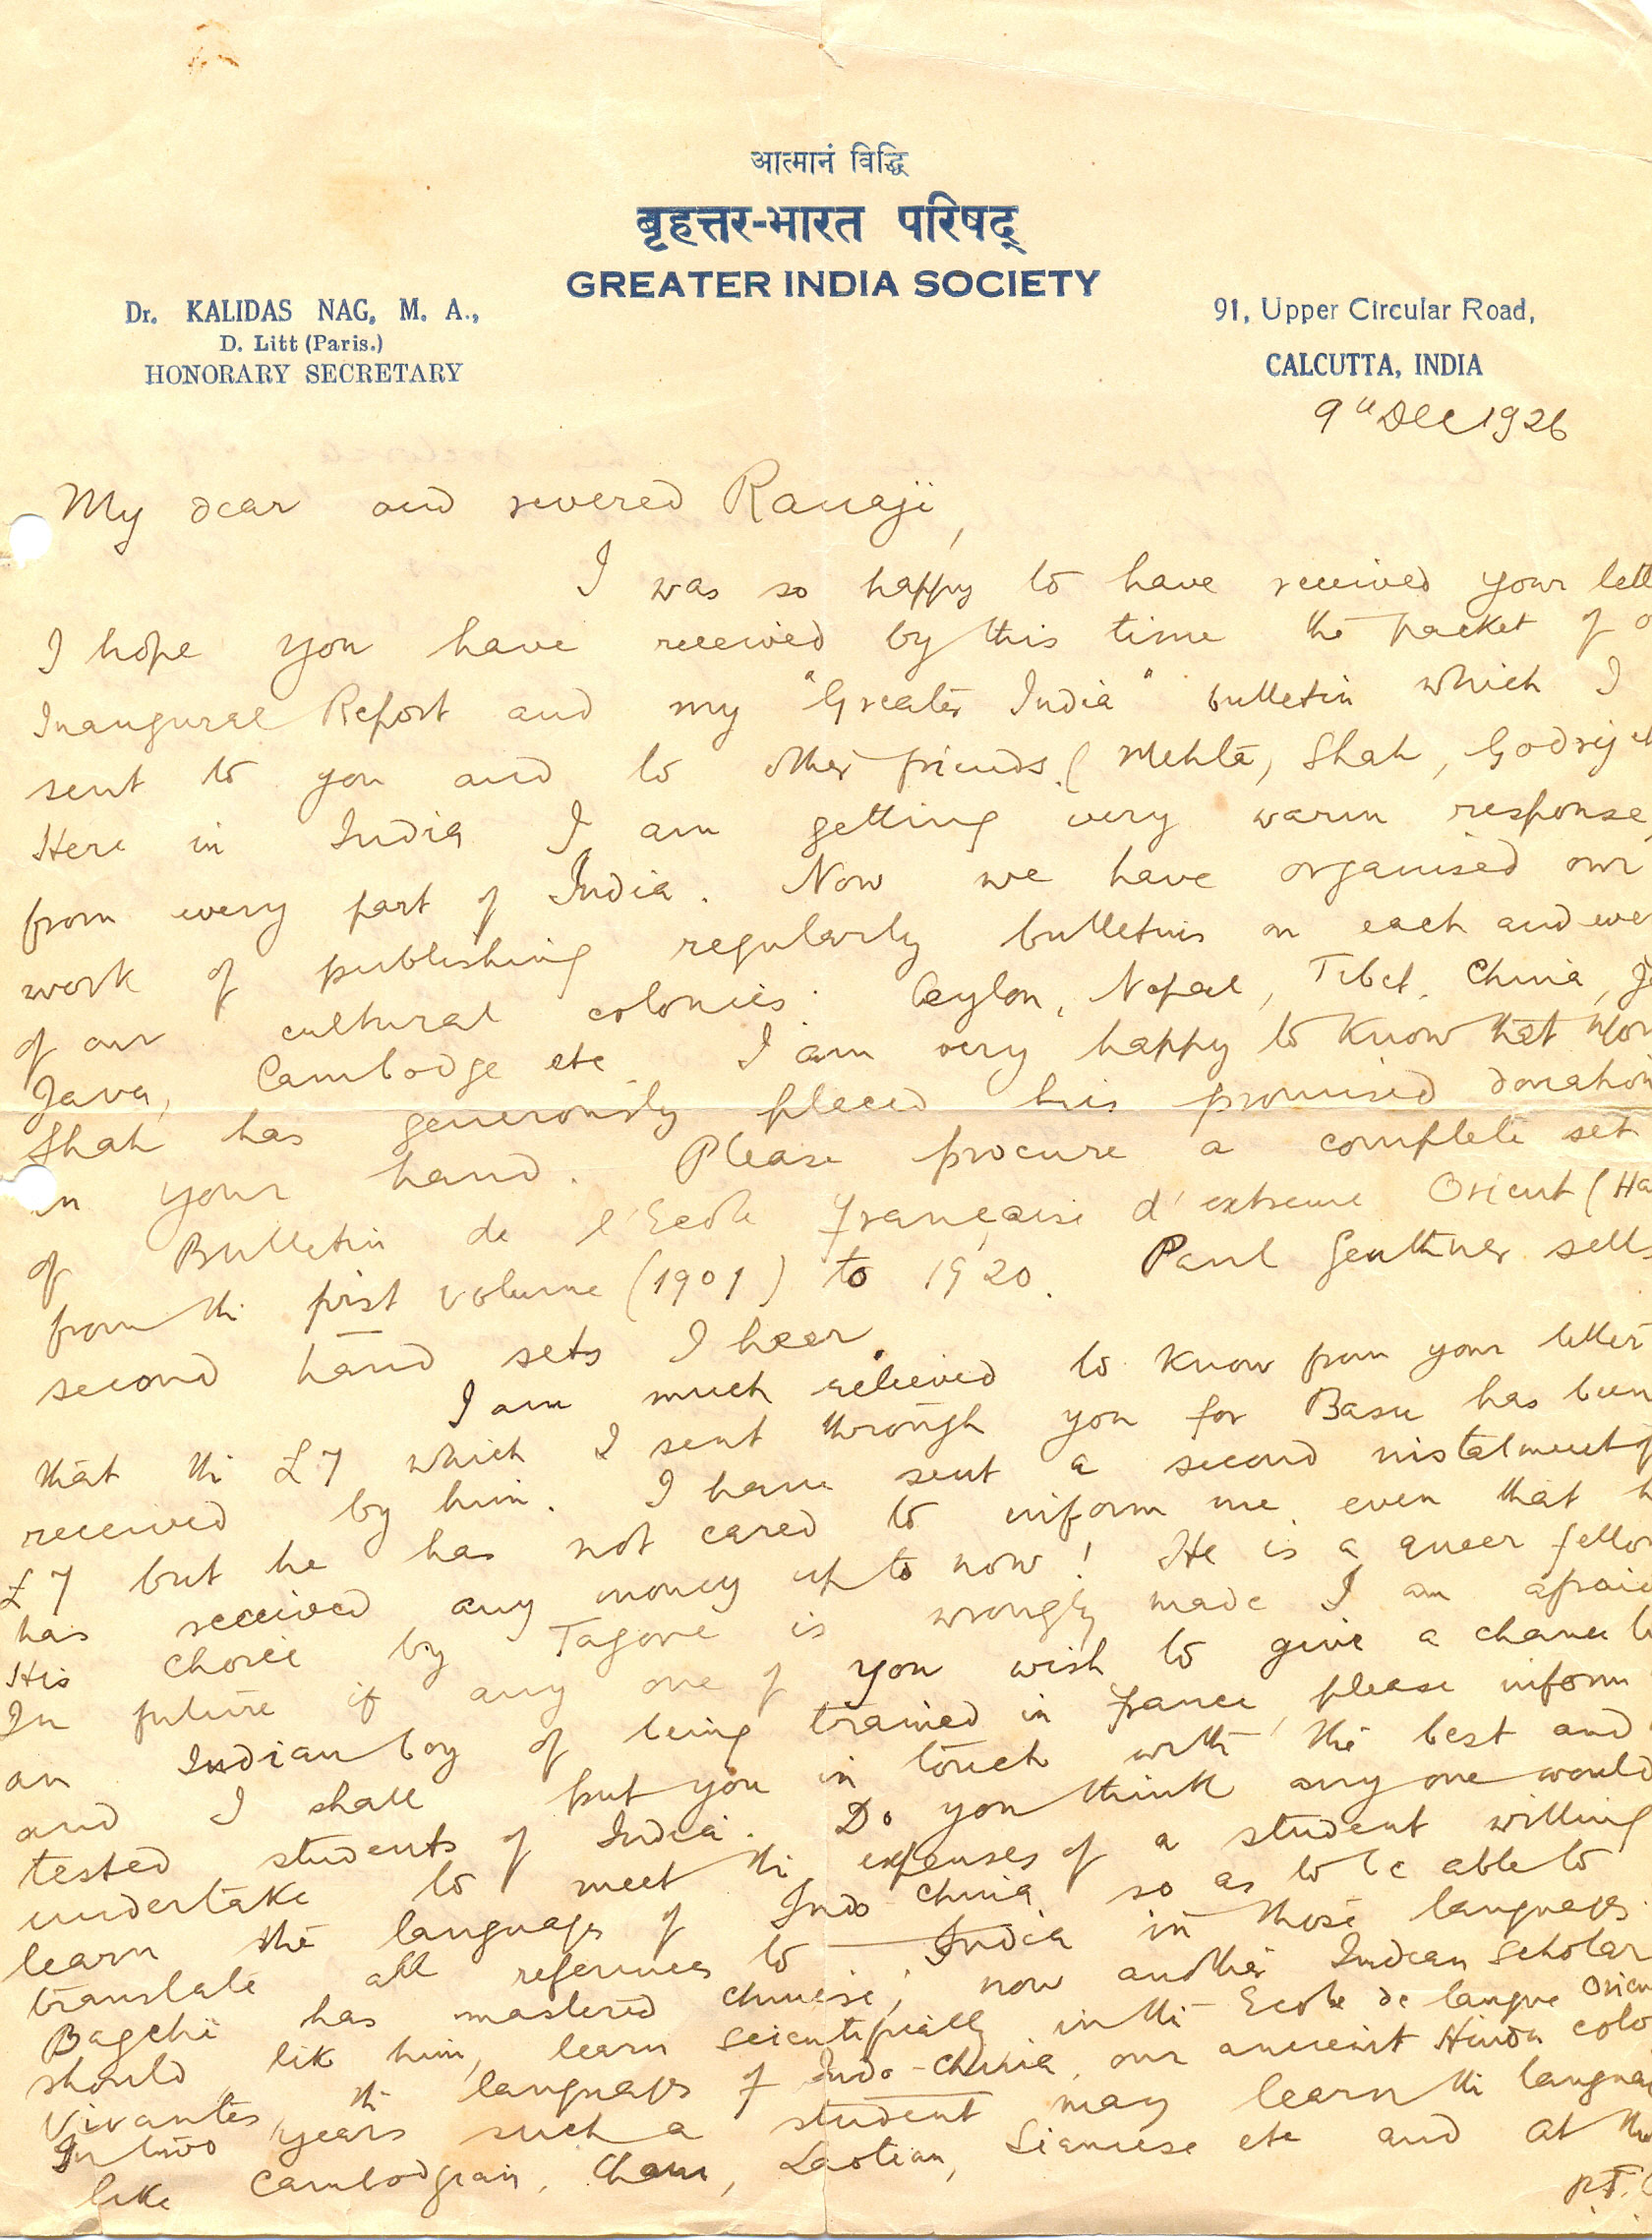 आत्मानं विद्धि
बृहत्तर-भारत परिषद्
GREATER INDIA SOCIETY
Dr. KALIDAS NAG, M. A.,
D. Litt (Paris.)
HONORARY SECRETARY
91, Upper Circular Road,
CALCUTTA, INDIA
9th Dec 1926
My dear and revered Ranaji,
I was so happy to have received your lett
I hope you have received by this time the packet of o
Inaugural Report and my "Greater India" bulletin which I
sent to you and to other friends (Mehta, Shah, Godrej et
Here in India I am getting very warm response
from every part of India. Now we have organised our
work of publishing regularly bulletins on each and eve
of our cultural colonies: Ceylon, Nepal, Tibet, China, Ja
Java, Cambodge etc I am very happy to know that Mon
Shah has generously placed his promised donation
in your hand. Please procure a complete set
of Bulletin de l'Ecole française d'extreme Orient (Ha
from the first volume (1901) to 1920. Paul Geuthner sells
second hand sets I hear.
I am much relieved to know from your letter
that the £7 which I sent through you for Basu has been
received by him. I have sent a second instalment of
£7 but he has not cared to inform me even that h
has received any money up to now! He is a queer fellow
His choice by Tagore is wrongly made I am afraid
In future if any one of you wish to give a chance to
an Indian boy of being trained in France, please inform
and I shall put you in touch with the best and
tested students of India. Do you think any one would
undertake to meet the expenses of a student willing
learn the languages of Indo China so as to be able to
translate all references to India in those languages.
Bagchi has mastered Chinese; now another Indian scholar
should like him, learn scientifically in the Ecole de langue Orien
Vivantes, the languages of Indo-China, our ancient Hindu colo
In two years such a student may learn the languag
like Cambodgian, Cham, Laotian, Siamese etc and at the
P.T.O